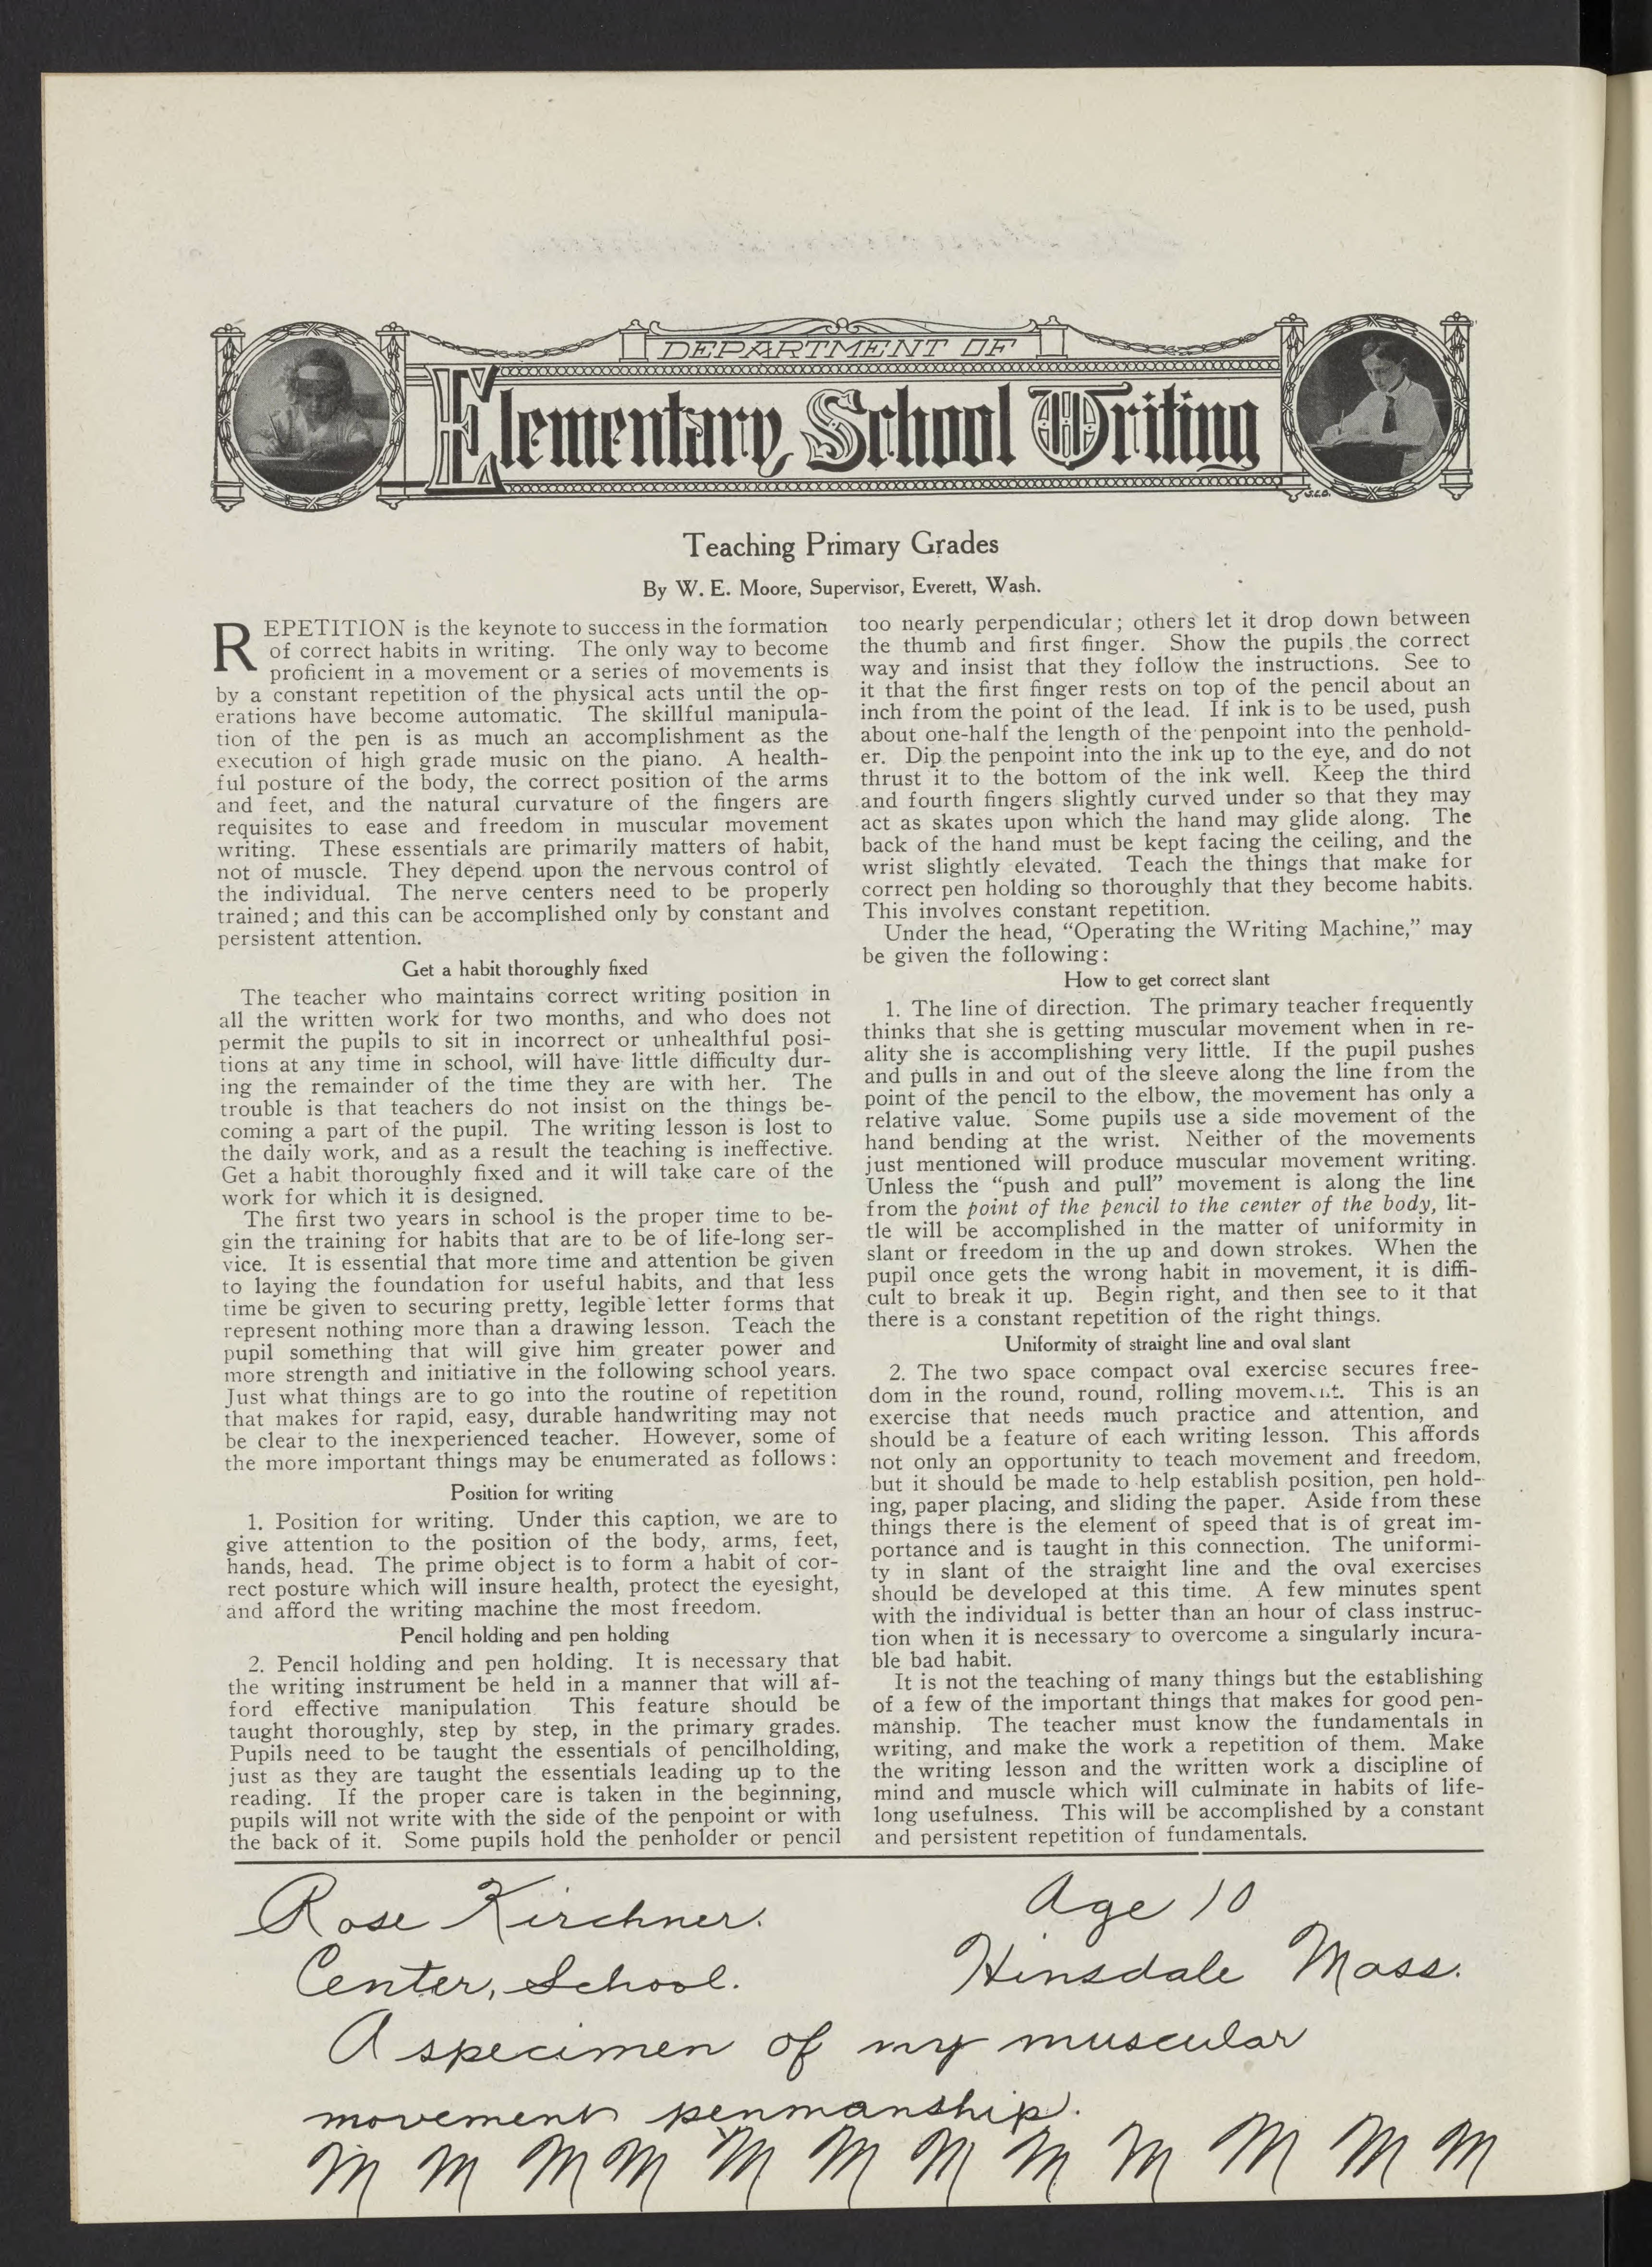 DEPARTMENT OF
Elementary School Writing
J.E.O.
Teaching Primary Grades
By W. E. Moore, Supervisor, Everett, Wash.
REPETITION is the keynote to success in the formation
of correct habits in writing. The only way to become
proficient in a movement or a series of movements is
by a constant repetition of the physical acts until the op-
erations have become automatic. The skillful manipula-
tion of the pen is as much an accomplishment as the
execution of high grade music on the piano. A health-
ful posture of the body, the correct position of the arms
and feet, and the natural curvature of the fingers are
requisites to ease and freedom in muscular movement
writing. These essentials are primarily matters of habit,
not of muscle. They depend upon the nervous control of
the individual. The nerve centers need to be properly
trained; and this can be accomplished only by constant and
persistent attention.
Get a habit thoroughly fixed
The teacher who maintains correct writing position in
all the written work for two months, and who does not
permit the pupils to sit in incorrect or unhealthful posi-
tions at any time in school, will have little difficulty dur-
ing the remainder of the time they are with her. The
trouble is that teachers do not insist on the things be-
coming a part of the pupil. The writing lesson is lost to
the daily work, and as a result the teaching is ineffective.
Get a habit thoroughly fixed and it will take care of the
work for which it is designed.
The first two years in school is the proper time to be-
gin the training for habits that are to be of life-long ser-
vice. It is essential that more time and attention be given
to laying the foundation for useful habits, and that less
time be given to securing pretty, legible letter forms that
represent nothing more than a drawing lesson. Teach the
pupil something that will give him greater power and
more strength and initiative in the following school years.
Just what things are to go into the routine of repetition
that makes for rapid, easy, durable handwriting may not
be clear to the inexperienced teacher. However, some of
the more important things may be enumerated as follows:
Position for writing
1. Position for writing. Under this caption, we are to
give attention to the position of the body, arms, feet,
hands, head. The prime object is to form a habit of cor-
rect posture which will insure health, protect the eyesight,
and afford the writing machine the most freedom.
Pencil holding and pen holding
2. Pencil holding and pen holding. It is necessary that
the writing instrument be held in a manner that will af-
ford effective manipulation This feature should be
taught thoroughly, step by step, in the primary grades.
Pupils need to be taught the essentials of pencilholding,
just as they are taught the essentials leading up to the
reading. If the proper care is taken in the beginning,
pupils will not write with the side of the penpoint or with
the back of it. Some pupils hold the penholder or pencil
too nearly perpendicular; others let it drop down between
the thumb and first finger. Show the pupils the correct
way and insist that they follow the instructions. See to
it that the first finger rests on top of the pencil about an
inch from the point of the lead. If ink is to be used, push
about one-half the length of the penpoint into the penhold-
er. Dip the penpoint into the ink up to the eye, and do not
thrust it to the bottom of the ink well. Keep the third
and fourth fingers slightly curved under so that they may
act as skates upon which the hand may glide along. The
back of the hand must be kept facing the ceiling, and the
wrist slightly elevated. Teach the things that make for
correct pen holding so thoroughly that they become habits.
This involves constant repetition.
Under the head, “Operating the Writing Machine,” may
be given the following:
How to get correct slant
1. The line of direction. The primary teacher frequently
thinks that she is getting muscular movement when in re-
ality she is accomplishing very little. If the pupil pushes
and pulls in and out of the sleeve along the line from the
point of the pencil to the elbow, the movement has only a
relative value. Some pupils use a side movement of the
hand bending at the wrist. Neither of the movements
just mentioned will produce muscular movement writing.
Unless the “push and pull” movement is along the line
from the point of the pencil to the center of the body, lit-
tle will be accomplished in the matter of uniformity in
slant or freedom in the up and down strokes. When the
pupil once gets the wrong habit in movement, it is diffi-
cult to break it up. Begin right, and then see to it that
there is a constant repetition of the right things.
Uniformity of straight line and oval slant
2. The two space compact oval exercise secures free-
dom in the round, round, rolling movement. This is an
exercise that needs much practice and attention, and
should be a feature of each writing lesson. This affords
not only an opportunity to teach movement and freedom,
but it should be made to help establish position, pen hold-
ing, paper placing, and sliding the paper. Aside from these
things there is the element of speed that is of great im-
portance and is taught in this connection. The uniformi-
ty in slant of the straight line and the oval exercises
should be developed at this time. A few minutes spent
with the individual is better than an hour of class instruc-
tion when it is necessary to overcome a singularly incura-
ble bad habit.
It is not the teaching of many things but the establishing
of a few of the important things that makes for good pen-
manship. The teacher must know the fundamentals in
writing, and make the work a repetition of them. Make
the writing lesson and the written work a discipline of
mind and muscle which will culminate in habits of life-
long usefulness. This will be accomplished by a constant
and persistent repetition of fundamentals.
Rose Kirchner. Age 10
Center, School. Hinsdale Mass.
A specimen of my muscular
movement penmanship.
M M M M M M M M M M M M